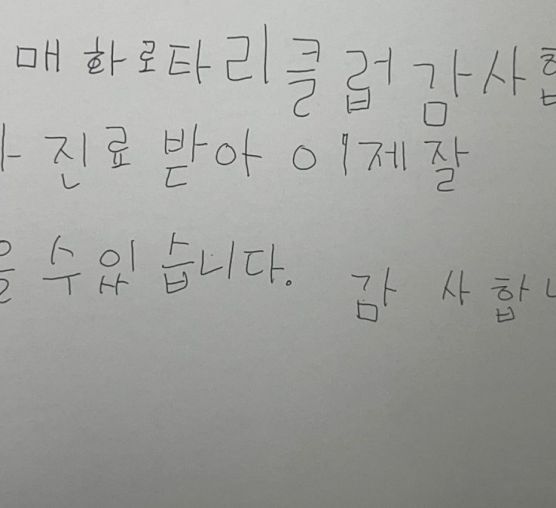 매화로타리클럽 감사합
진료 받아 이제 잘
을 수 있습니다. 감사합니